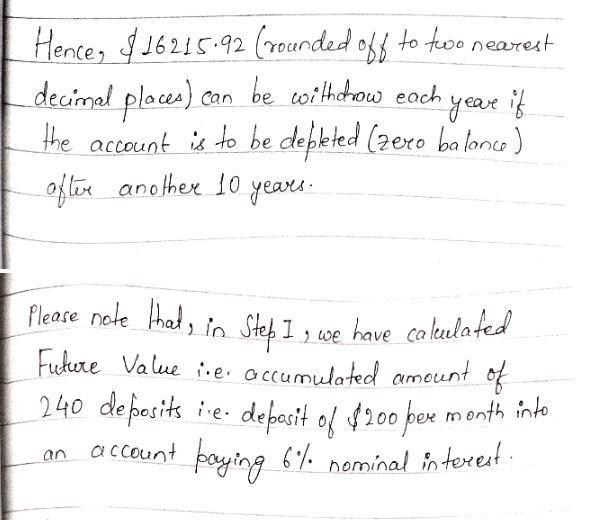 Hence, $16215.92 (rounded off to two nearest
decimal places) can be withdrow each yeare if
the account is to be depleted (zero balance)
after another 10 years.
Please note that, in Step I, we have calculated
Future Value i.e. accumulated amount of
240 deposits i.e. deposit of $200 per month into
an account paying 6% nominal interest.